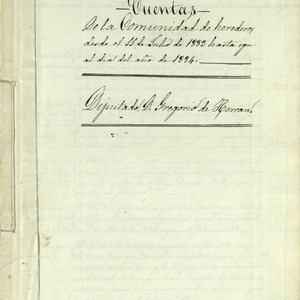 Cuentas
De la Comunidad de herederos
desde el 11 de Julio de 1883 hasta igual
al dia del año de 1884.
Diputado D. Gregorio de Herran.